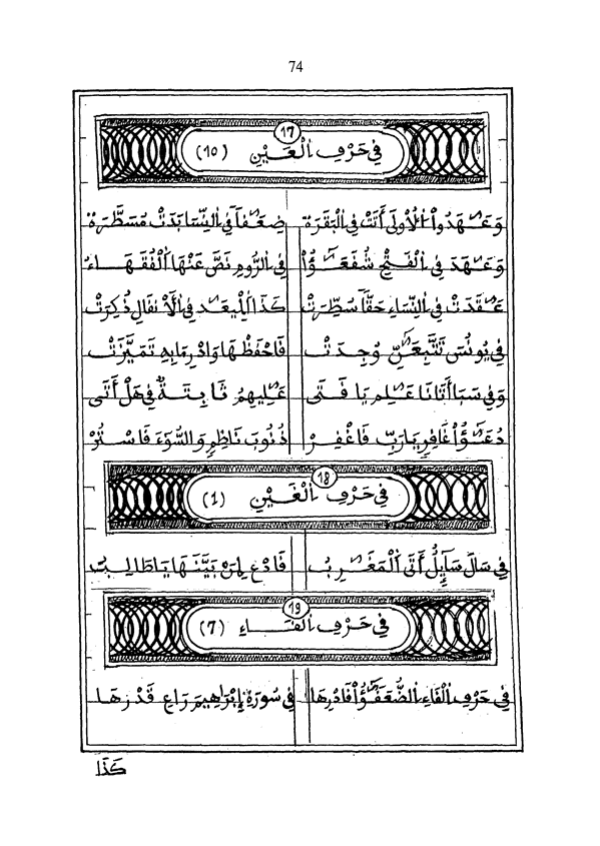 74
17
فِي حَرْفِ الْعَيْنِ (10)
وَعَٰهَدُوا الْأُولَى أَتَتْ فِي الْبَقَرَة ضِعَٰفاً فِي النِّسَا بَدَتْ مُسَطَّرَة
وَعَٰهَدَ فِي الْفَتْحِ شُفَعَٰٓؤُا فِي الرُّومِ نَصَّ عَنْهَا الْفُقَهَاءُ
عَٰقَدَتْ فِي النِّسَاءِ حَقّاً سُطِّرَتْ كَذَا الْمِيعَٰد فِي الْأَنْفَالِ ذُكِرَتْ
فِي يُونُسَ تَتَّبِعَٰنِّ وُجِدَتْ فَاحْفَظْهَا وَادْرِ مَا بِهِ تَمَيَّزَتْ
وَفِي سَبَا أَتَانَا عَٰلِمِ يَا فَتَى عَٰلِيهِمْ ثَابِتَةٌ فِي هَلْ أَتَى
دُعَٰٓؤُا غَافِرٍ يَا رَبِّ فَاغْفِرْ ذُنُوبَ نَاظِمٍ وَالسُّوءَ فَاسْتُرْ
18
فِي حَرْفِ الْغَيْنِ (1)
فِي سَالَ سَآئِلٌ أَتَى الْمَغَٰرِبُ فَادْعُ لِمَنْ بَيَّنَهَا يَا طَالِبُ
19
فِي حَرْفِ الْفَاءِ (7)
فِي حَرْفِ الْفَاءِ الضُّعَفَٰٓؤُا فَادْرِهَا فِي سُورَةِ إِبْرَاهِيمَ رَاعِ قَدْرَهَا
كَذَا